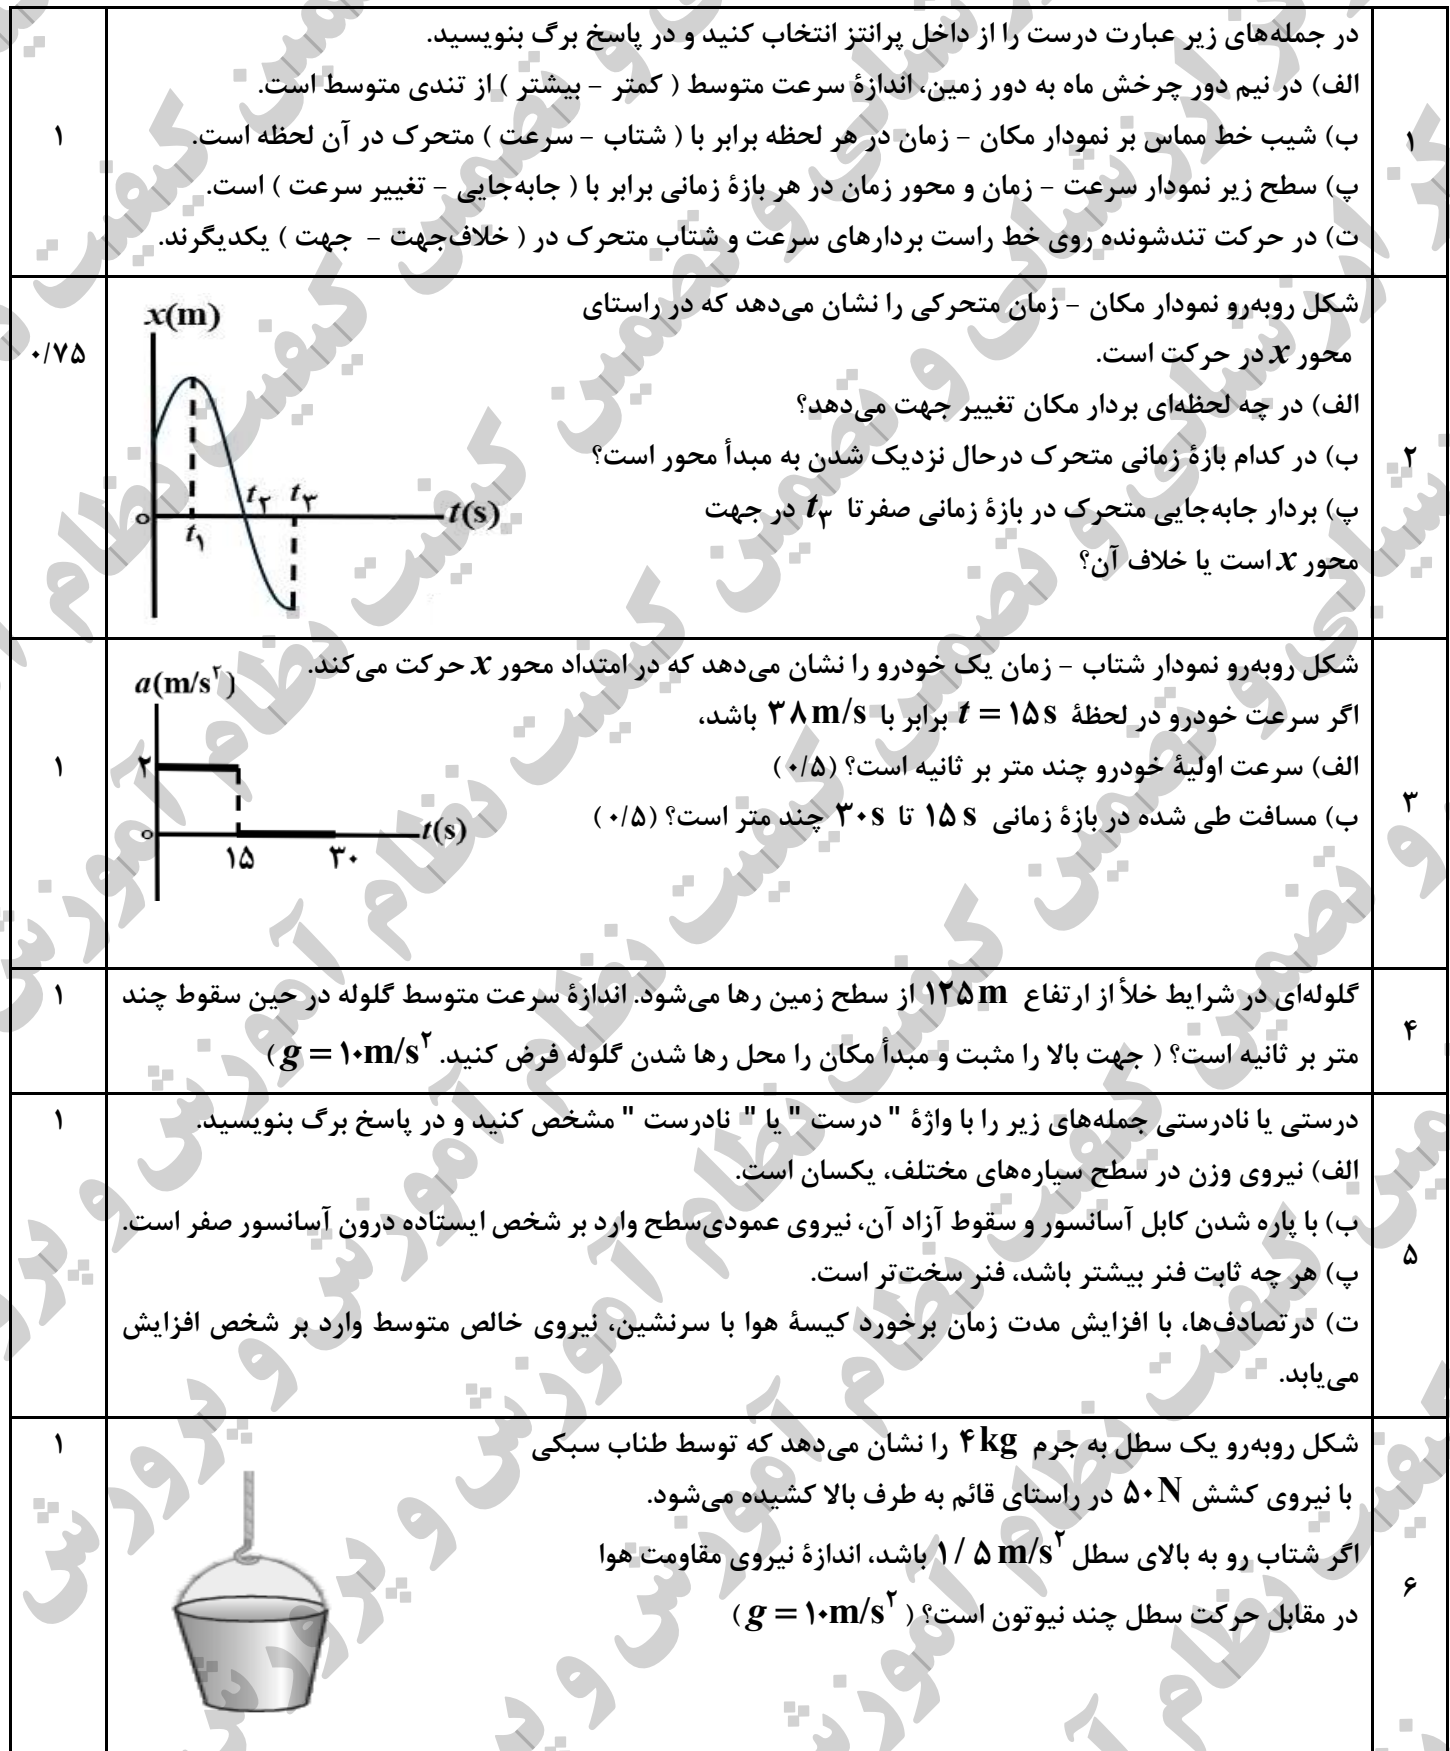 ۱
در جمله‌های زیر عبارت درست را از داخل پرانتز انتخاب کنید و در پاسخ برگ بنویسید.
الف) در نیم دور چرخش ماه به دور زمین، اندازۀ سرعت متوسط ( کمتر – بیشتر ) از تندی متوسط است.
ب) شیب خط مماس بر نمودار مکان – زمان در هر لحظه برابر با ( شتاب – سرعت ) متحرک در آن لحظه است.
پ) سطح زیر نمودار سرعت – زمان و محور زمان در هر بازۀ زمانی برابر با ( جابه‌جایی – تغییر سرعت ) است.
ت) در حرکت تندشونده روی خط راست بردارهای سرعت و شتاب متحرک در ( خلاف‌جهت – جهت ) یکدیگرند.
۱
۲
شکل روبه‌رو نمودار مکان – زمان متحرکی را نشان می‌دهد که در راستای
محور x در حرکت است.
الف) در چه لحظه‌ای بردار مکان تغییر جهت می‌دهد؟
ب) در کدام بازۀ زمانی متحرک درحال نزدیک شدن به مبدأ محور است؟
پ) بردار جابه‌جایی متحرک در بازۀ زمانی صفرتا t۳ در جهت
محور x است یا خلاف آن؟
x(m)
t۲ t۳
o t(s)
t۱
۰/۷۵
۳
شکل روبه‌رو نمودار شتاب – زمان یک خودرو را نشان می‌دهد که در امتداد محور x حرکت می‌کند.
اگر سرعت خودرو در لحظۀ t = ۱۵s برابر با ۳۸m/s باشد،
الف) سرعت اولیۀ خودرو چند متر بر ثانیه است؟ (۰/۵)
ب) مسافت طی شده در بازۀ زمانی ۱۵s تا ۳۰s چند متر است؟ (۰/۵)
a(m/s²)
۲
o t(s)
۱۵ ۳۰
۱
۴
گلوله‌ای در شرایط خلأ از ارتفاع ۱۲۵m از سطح زمین رها می‌شود. اندازۀ سرعت متوسط گلوله در حین سقوط چند
متر بر ثانیه است؟ ( جهت بالا را مثبت و مبدأ مکان را محل رها شدن گلوله فرض کنید. g = ۱۰m/s² )
۱
۵
درستی یا نادرستی جمله‌های زیر را با واژۀ " درست " یا " نادرست " مشخص کنید و در پاسخ برگ بنویسید.
الف) نیروی وزن در سطح سیاره‌های مختلف، یکسان است.
ب) با پاره شدن کابل آسانسور و سقوط آزاد آن، نیروی عمودی‌سطح وارد بر شخص ایستاده درون آسانسور صفر است.
پ) هر چه ثابت فنر بیشتر باشد، فنر سخت‌تر است.
ت) درتصادف‌ها، با افزایش مدت زمان برخورد کیسۀ هوا با سرنشین، نیروی خالص متوسط وارد بر شخص افزایش
می‌یابد.
۱
۶
شکل روبه‌رو یک سطل به جرم ۴kg را نشان می‌دهد که توسط طناب سبکی
با نیروی کشش ۵۰N در راستای قائم به طرف بالا کشیده می‌شود.
اگر شتاب رو به بالای سطل ۱/۵m/s² باشد، اندازۀ نیروی مقاومت هوا
در مقابل حرکت سطل چند نیوتون است؟ ( g = ۱۰m/s² )
۱